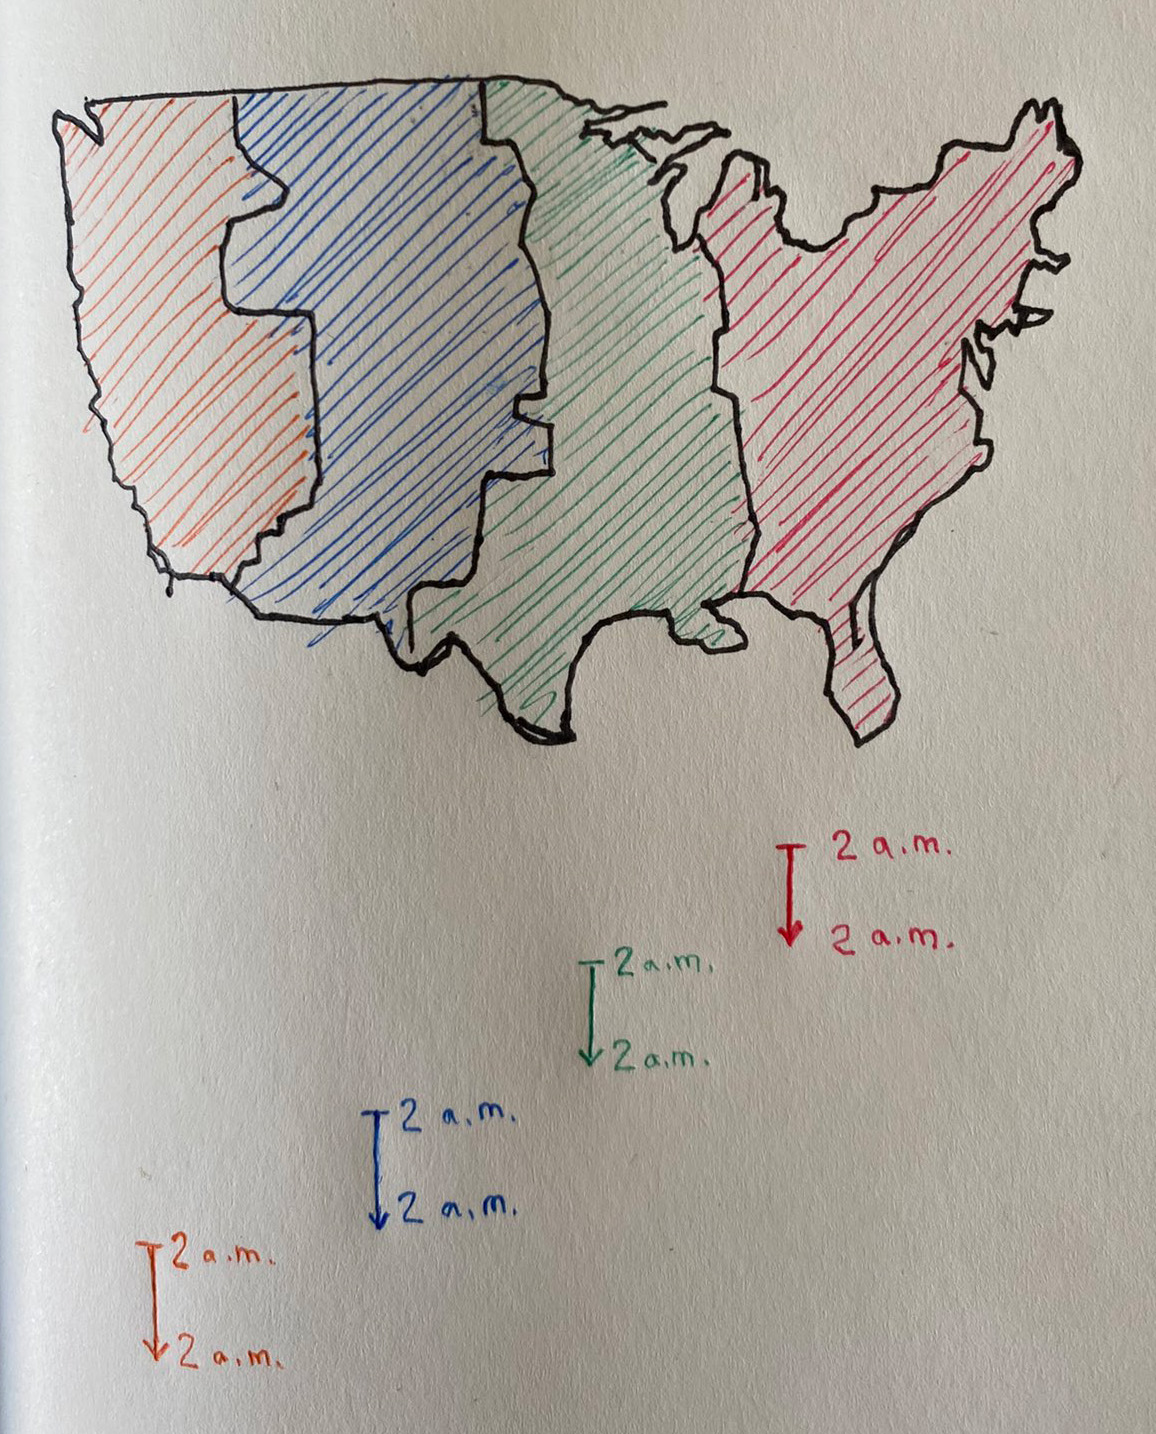 2 a.m.
2 a.m.
2 a.m.
2 a.m.
2 a.m.
2 a.m.
2 a.m.
2 a.m.